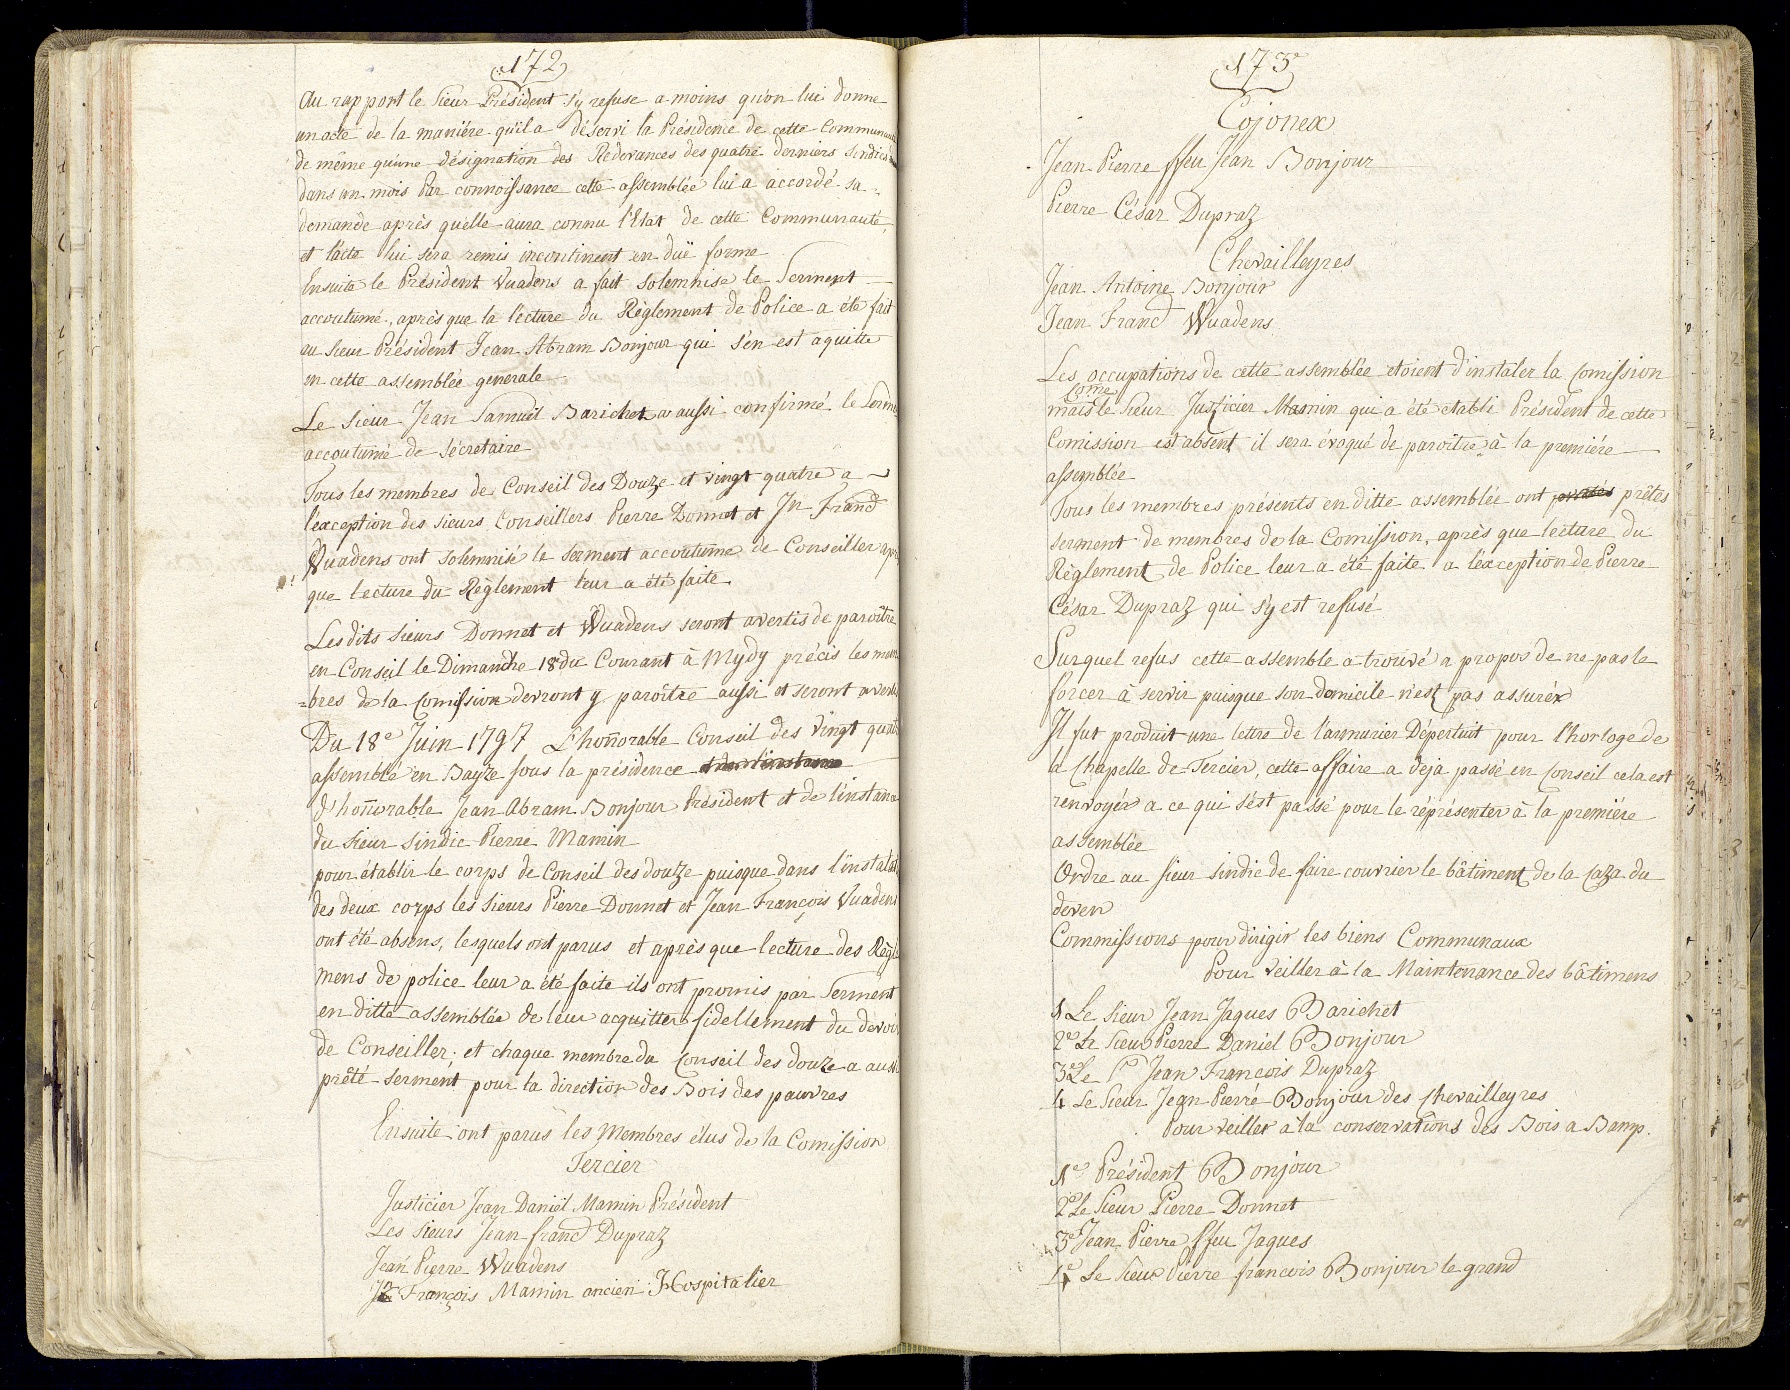 172
Au rapport le Sieur Président s'y refuse a moins qu'on lui donne
un acte de la maniére qu'il a déservi la Présidence de cette Communauté
de même qu'une désignation des Réderances des quatre derniers Sindics
dans un mois Par connoissance cette assemblée lui a accordé sa
demande après quelle aura connu l'Etat de cette Communauté,
et l'acte lui sera remis incontinent en duë forme
Ensuite le Président Vuadens a fait solemnise le Serment
accoutumé, après que la lecture du Règlement de Police a été fait
au Sieur Président Jean Abram Bonjour qui s'en est aquitte
en cette assemblée generale
Le Sieur Jean Samuël Barichet a aussi confirmé le Serme
accoutumé de Sécretaire
Tous les membres de Conseil des Douze et vingt quatre a
l'exception des sieurs Conseillers Pierre Donnet et Jn Franc
Wuadens ont solemnisé le serment accoutume de Conseiller apr
que lecture du Règlement leur a été faite.
Lesdits Sieurs Donnet et Wuadens seront avertis de paroître
en Conseil le Dimanche 18e du Courant à Mydy précis les mem
=bres de la Comission devront y paroître aussi et seront averti
Du 18e Juin 1797 L'honnorable Conseil des vingt quatr
assemblé en Bayze sous la présidence
d'honnorable Jean Abram Bonjour Président et de l'instance
du Sieur Sindic Pierre Mamin
pour établir le corps de Conseil des doutze puisque dans l'instalat
des deux corps les Sieurs Pierre Donnet et Jean François Vuadens
ont été absens, lesquels ont parus et après que lecture des Règl
mens de police leur a été faite ils ont promis par Serment
en ditte assemblée de leur acquitter fidellement du devoir
de Conseiller; et chaque membre du Conseil des douze a aussi
prêté serment pour la direction des Bois des pauvres
Ensuite ont parus les Membres élus de la Comission
Tercier
Justicier Jean Daniël Mamin Président
Les Sieurs Jean franc Dupraz
Jean Pierre Wuadens
François Mamin ancien Hospitalier
173
Cojonex
Jean Pierre ffeu Jean Bonjour
Pierre César Dupraz
Chevailleyres
Jean Antoine Bonjour
Jean Franc Wuadens
Les occupations de cette assemblée etoient d'instaler la Comission
come
mais le Sieur Justicier Mamin qui a été etabli Président de cette
Comission est absent il sera évoqué de paroitre à la premiére
assemblée
Tous les membres présents en ditte assemblée ont prêtes
serment de membres de la Comission, après que lecture du
Règlement de Police leur a été faite a l'exception de Pierre
César Dupraz qui s'y est refusé
Surquel refus cette assemble a trouvé a propos de ne pas le
forcer à servir puisque son domicile n'est pas assuréx
Il fut produit une lettre de l'armurier Dépertuit pour l'horloge de
la Chapelle de Tercier, cette affaire a deja passé en Conseil cela est
renvoyér a ce qui s'ést passé pour le réprésenter à la premiére
assemblée
Ordre au Sieur Sindic de faire couvrier le bâtiment de la Caza du
deven
Commissions pour dirigir les biens Communaux
Pour veiller à la Maintenance des bâtimens
1 Le Sieur Jean Jaques Barichet
2e Le Sieur Pierre Daniel Bonjour
3e Le Sr Jean François Dupraz
4 Le Sieur Jean Pierré Bonjour des Chevailleyres
Pour veiller à la conservations des Bois a Bamp.
1e Président Bonjour
2e Le Sieur Pierre Donnet
3e Jean Pierre ffeu Jaques
4e Le Sieur Pierre francois Bonjour le grand